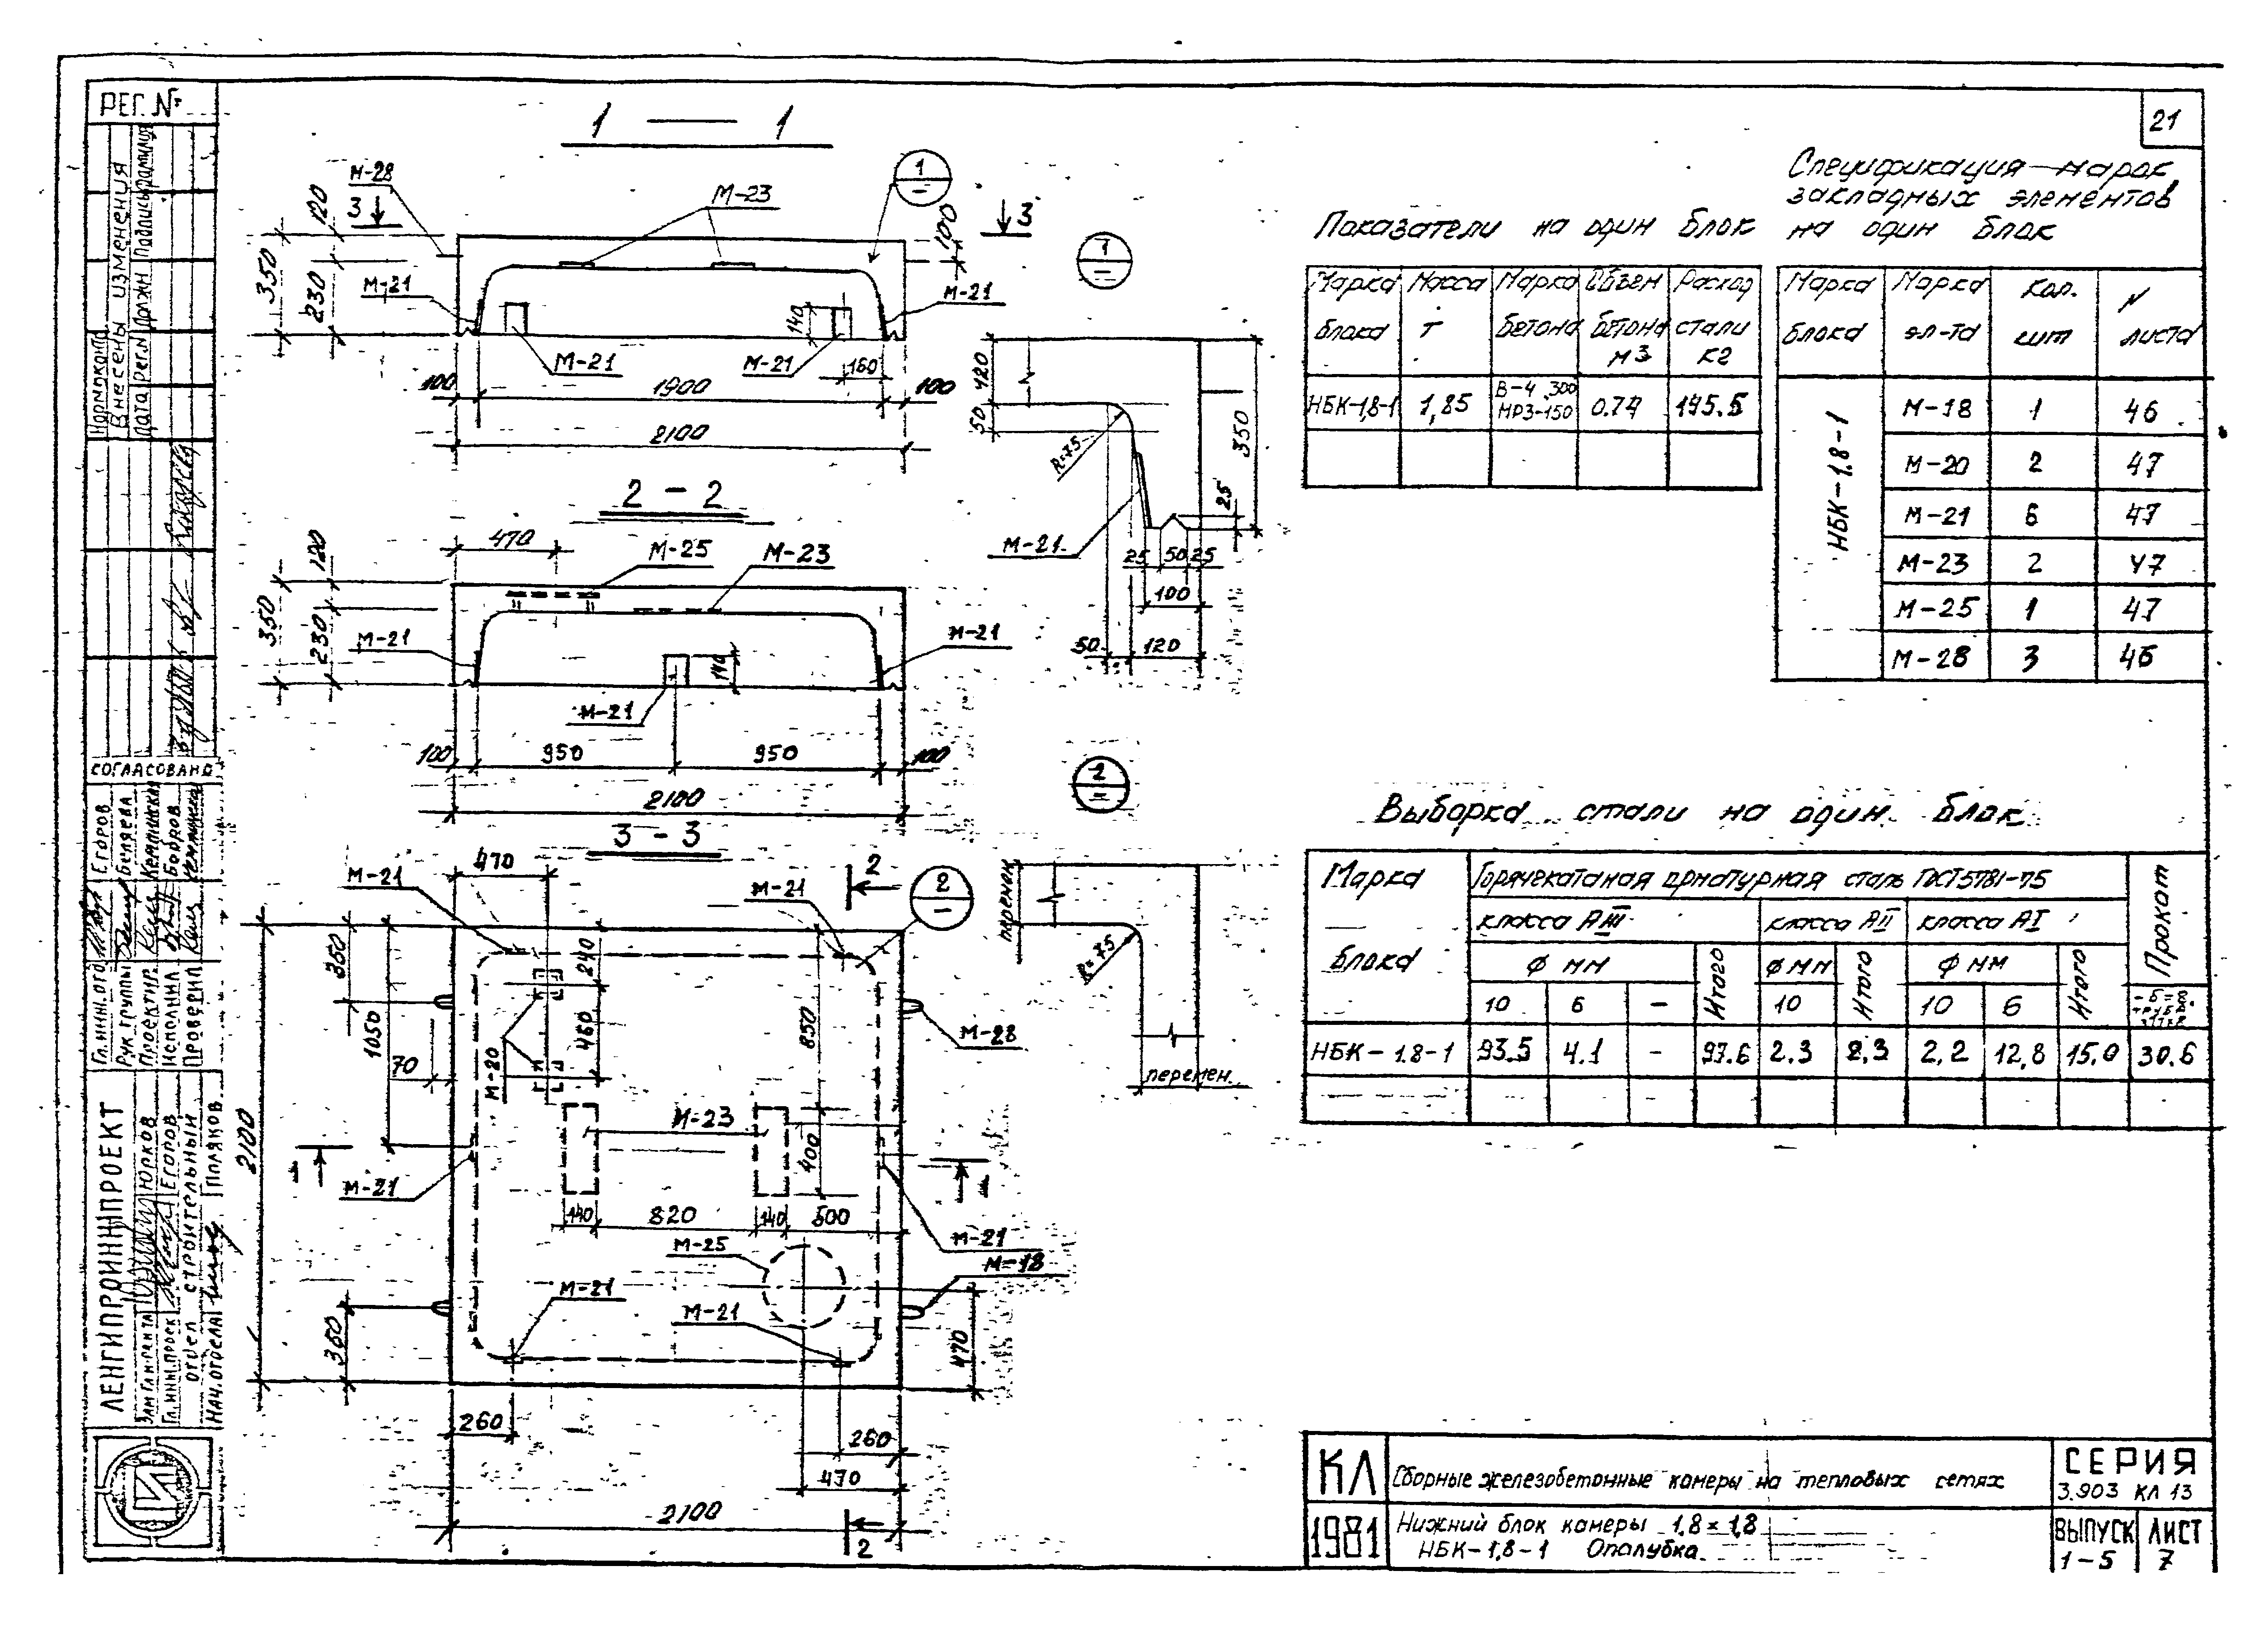 РЕГ. №
21
1 — 1
М-28
3
120
М-23
1
100
3
350
230
М-21
140
М-21
М-21
М-21
160
100
1900
100
2100
2 - 2
470
120
М-25
М-23
350
230
М-21
140
М-21
М-21
100
950
950
100
2100
3 - 3
М-21
470
М-21
2
2
350
240
1050
460
850
М-28
70
М-20
М-23
400
2100
1
1
М-21
140
820
140
500
М-21
М-18
М-25
М-21
М-21
350
470
260
260
470
2100
2
1
120
50
R=75
350
25
М-21
25
50
25
100
50
120
2
перемен.
R=75
перемен.
Показатели на один блок
Марка блока
Масса т
Марка бетона
Объем бетона м3
Расход стали кг
НБК-1,8-1
1,85
В-4 300 МРЗ-150
0.74
145.5
Спецификация марок
закладных элементов
на один блок
Марка блока
Марка эл-та
Кол. шт
N листа
НБК-1,8-1
М-18 1 46
М-20 2 47
М-21 6 47
М-23 2 47
М-25 1 47
М-28 3 46
Выборка стали на один блок
Марка блока
Горячекатаная арматурная сталь ГОСТ 5781-75
Прокат
класса АIII
класса АII
класса АI
Ф мм
Итого
Ф мм
Итого
Ф мм
Итого
10 6 -
10
10 6
НБК-1.8-1 93.5 4.1 - 97.6 2.3 2.3 2,2 12,8 15,0 30.6
КЛ
Сборные железобетонные камеры на тепловых сетях
СЕРИЯ
3.903 КЛ 13
1981
Нижний блок камеры 1,8×1,8
НБК-1,8-1 Опалубка
ВЫПУСК
1-5
ЛИСТ
7
Внесены изменения
Нормоконтр
Дата
Рег.N
Должн
Подпись
Фамилия
СОГЛАСОВАНО
Гл.инж.отд
Егоров
Рук.группы
Беляева
Проектир.
Кемтинская
Исполнил
Бобров
Проверил
Кемтинская
ЛЕНГИПРОИНЖПРОЕКТ
Юрков
Гл.инж.проек
Егоров
отдел строительный
Нач.отдела
Поляков